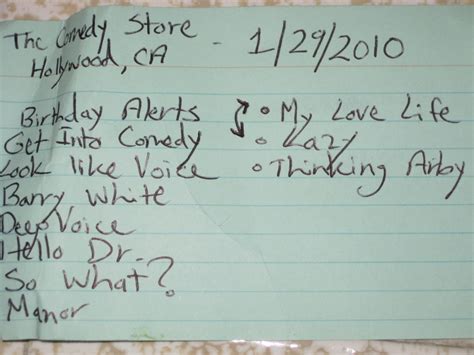 The Comedy Store - 1/29/2010
Hollywood, CA
Birthday Alerts
Get Into Comedy
Look like Voice
Barry White
Deep Voice
Hello Dr.
So What?
Manor
• My Love Life
• Lazy
• Thinking Arby